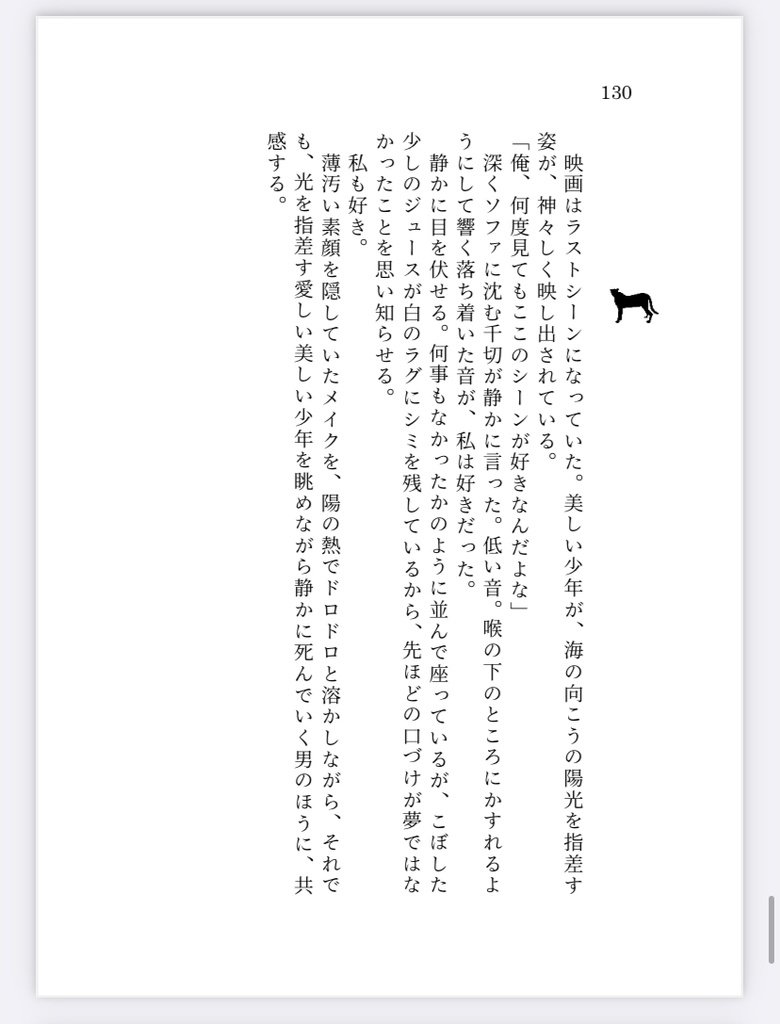 130
映画はラストシーンになっていた。美しい少年が、海の向こうの陽光を指差す
姿が、神々しく映し出されている。
「俺、何度見てもここのシーンが好きなんだよな」
深くソファに沈む千切が静かに言った。低い音。喉の下のところにかすれるよ
うにして響く落ち着いた音が、私は好きだった。
静かに目を伏せる。何事もなかったかのように並んで座っているが、こぼした
少しのジュースが白のラグにシミを残しているから、先ほどの口づけが夢ではな
かったことを思い知らせる。
私も好き。
薄汚い素顔を隠していたメイクを、陽の熱でドロドロと溶かしながら、それで
も、光を指差す愛しい美しい少年を眺めながら静かに死んでいく男のほうに、共
感する。